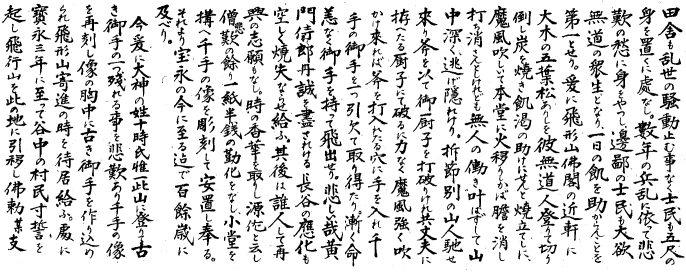 田舎も乱世の騒動止む事なく士民も五尺の
身を置くに處なし。数年の兵乱に依って悲
歎の愁に身をやつし邊鄙の士民も大欲
無道の衆生となり一日の飢を助からんことを
第一とせり。爰に飛形山佛閣の近軒に
大木の五葉松ありしを彼無道人登りて切り
倒し炭を焼き飢渇の助けに光を焼立てしに、
魔風吹いて本堂に火移りかば膽を消し
打ち消さんとしけれども無人の働き叶はずして山
中深く逃げ隠れけり、折節別の山人馳せ
来り斧を以て御厨子を打破りけれ共丈夫に
拵へたる厨子にて破るに力なく魔風強く吹
かけ来れば斧を打入れたる穴に手を入れ千
手の御手を一つ引欠て取り得たり漸々命
恙なく御手を持って飛出ぬ。悲しい哉黄
門信郎丹誠を盡されける長谷の應化も
空しく焼失ならせ給ふ、其後は誰人して再
興の志願もなし。時の香華を取りし源作と云し
僧歎の餘り一紙半銭の勧化をなし小堂を
構へ千手の像を彫刻して安置し奉る。
それより宝永の今に至る迄で百餘歳に
及べり。
今爰に大神の姓大時氏惟此山に登り古
き御手の一つ残れる事を悲歎あり千手の像
を再刻し像の胸中に古き御手を作り込め
られ飛形山寄進の時を待居給ふ處に
寳永三年に至って谷中の村民寸誓を
起し飛行山を此の地に引移し佛勅を支